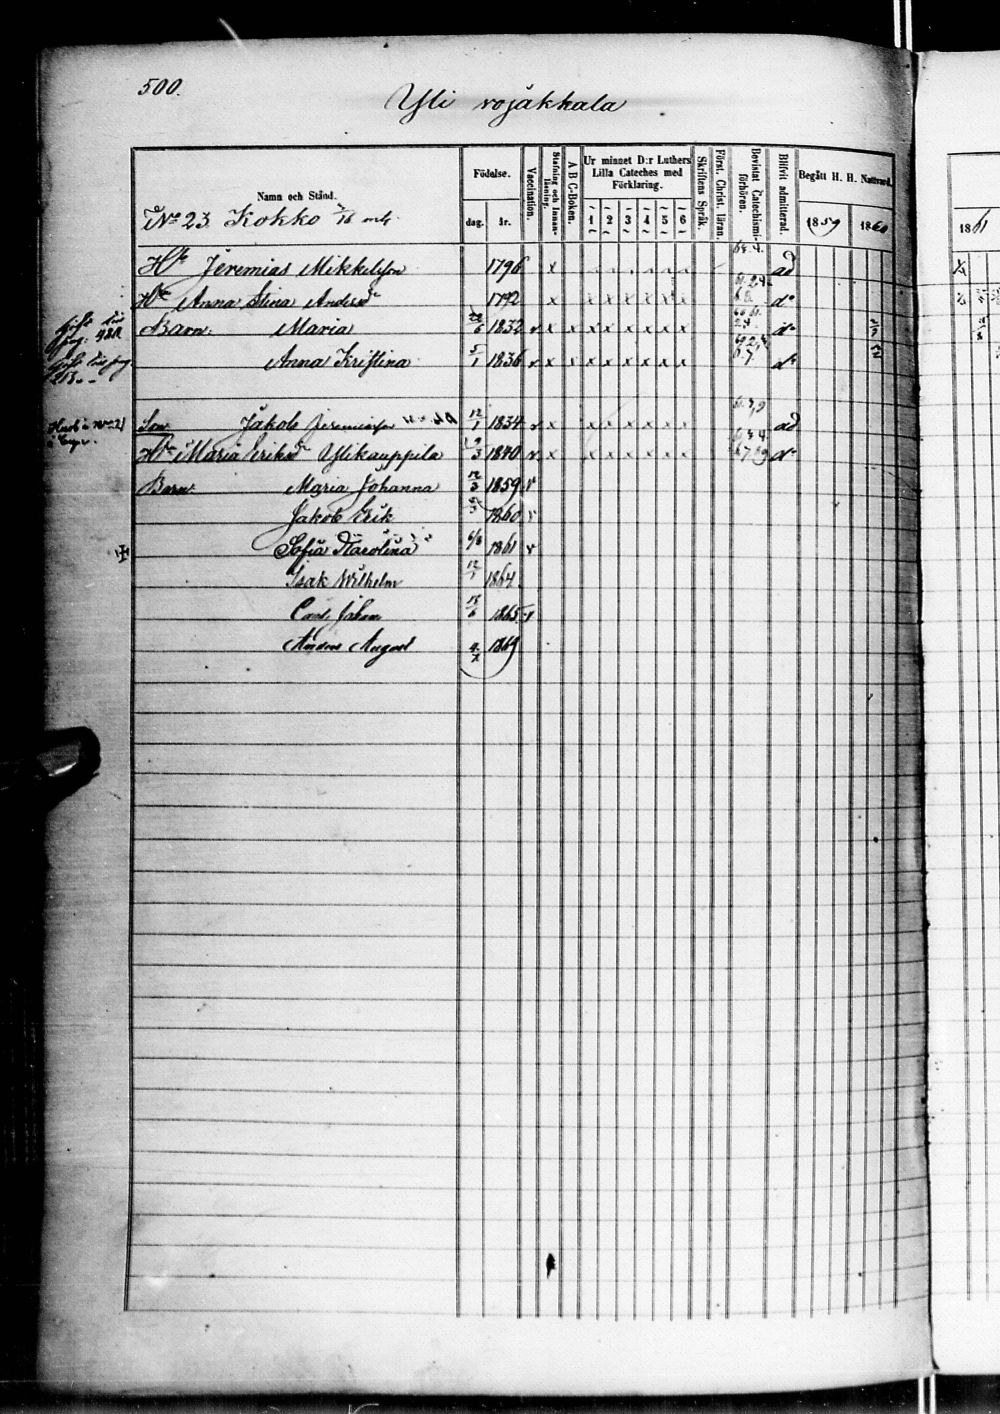 500.
Yli rojäkkala
Namn och Stånd.
Födelse.
dag. år.
Vaccination.
Stafning och Innanläsning.
A B C-Boken.
Ur minnet D:r Luthers Lilla Cateches med Förklaring.
1 2 3 4 5 6
Skriftens Språk.
Först. Christ. läran.
Bevistat Catechismiförhören.
Blifvit admitterad.
Begått H. H. Nattvard.
1859 1860
1861
No 23 Kokko
Jeremias Mikkelsson 1796 x ad
Anna Stina Anders 1792 x x x x x x x do
Barn: Maria 1832 v x x x x x x x x do
Anna Kristina 5/1 1836 v x x x x x x x x do
Son Jakob Jeremiasson 12/1 1834 v x x x x x x x ad
Maria Eriks Ylikauppila 1840 v x x x x x x x do
Barn: Maria Johanna 1859 v
Jakob Erik 1860 v
Sofia Karolina 1861 v
Isak Wilhelm 1864
Carl Johan 1865 v
Anders August 1869